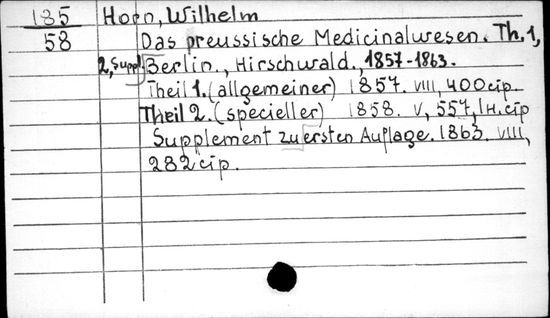 185 Horn, Wilhelm
58 Das preussische Medicinalwesen. Th. 1,
2, Suppl. Berlin., Hirschwald., 1857-1863.
Theil 1. (allgemeiner) 1857. VIII, 400 cip.
Theil 2. (specieller) 1858. V, 557, 1 H. cip
Supplement zu ersten Auflage. 1863. VIII,
282 cip.